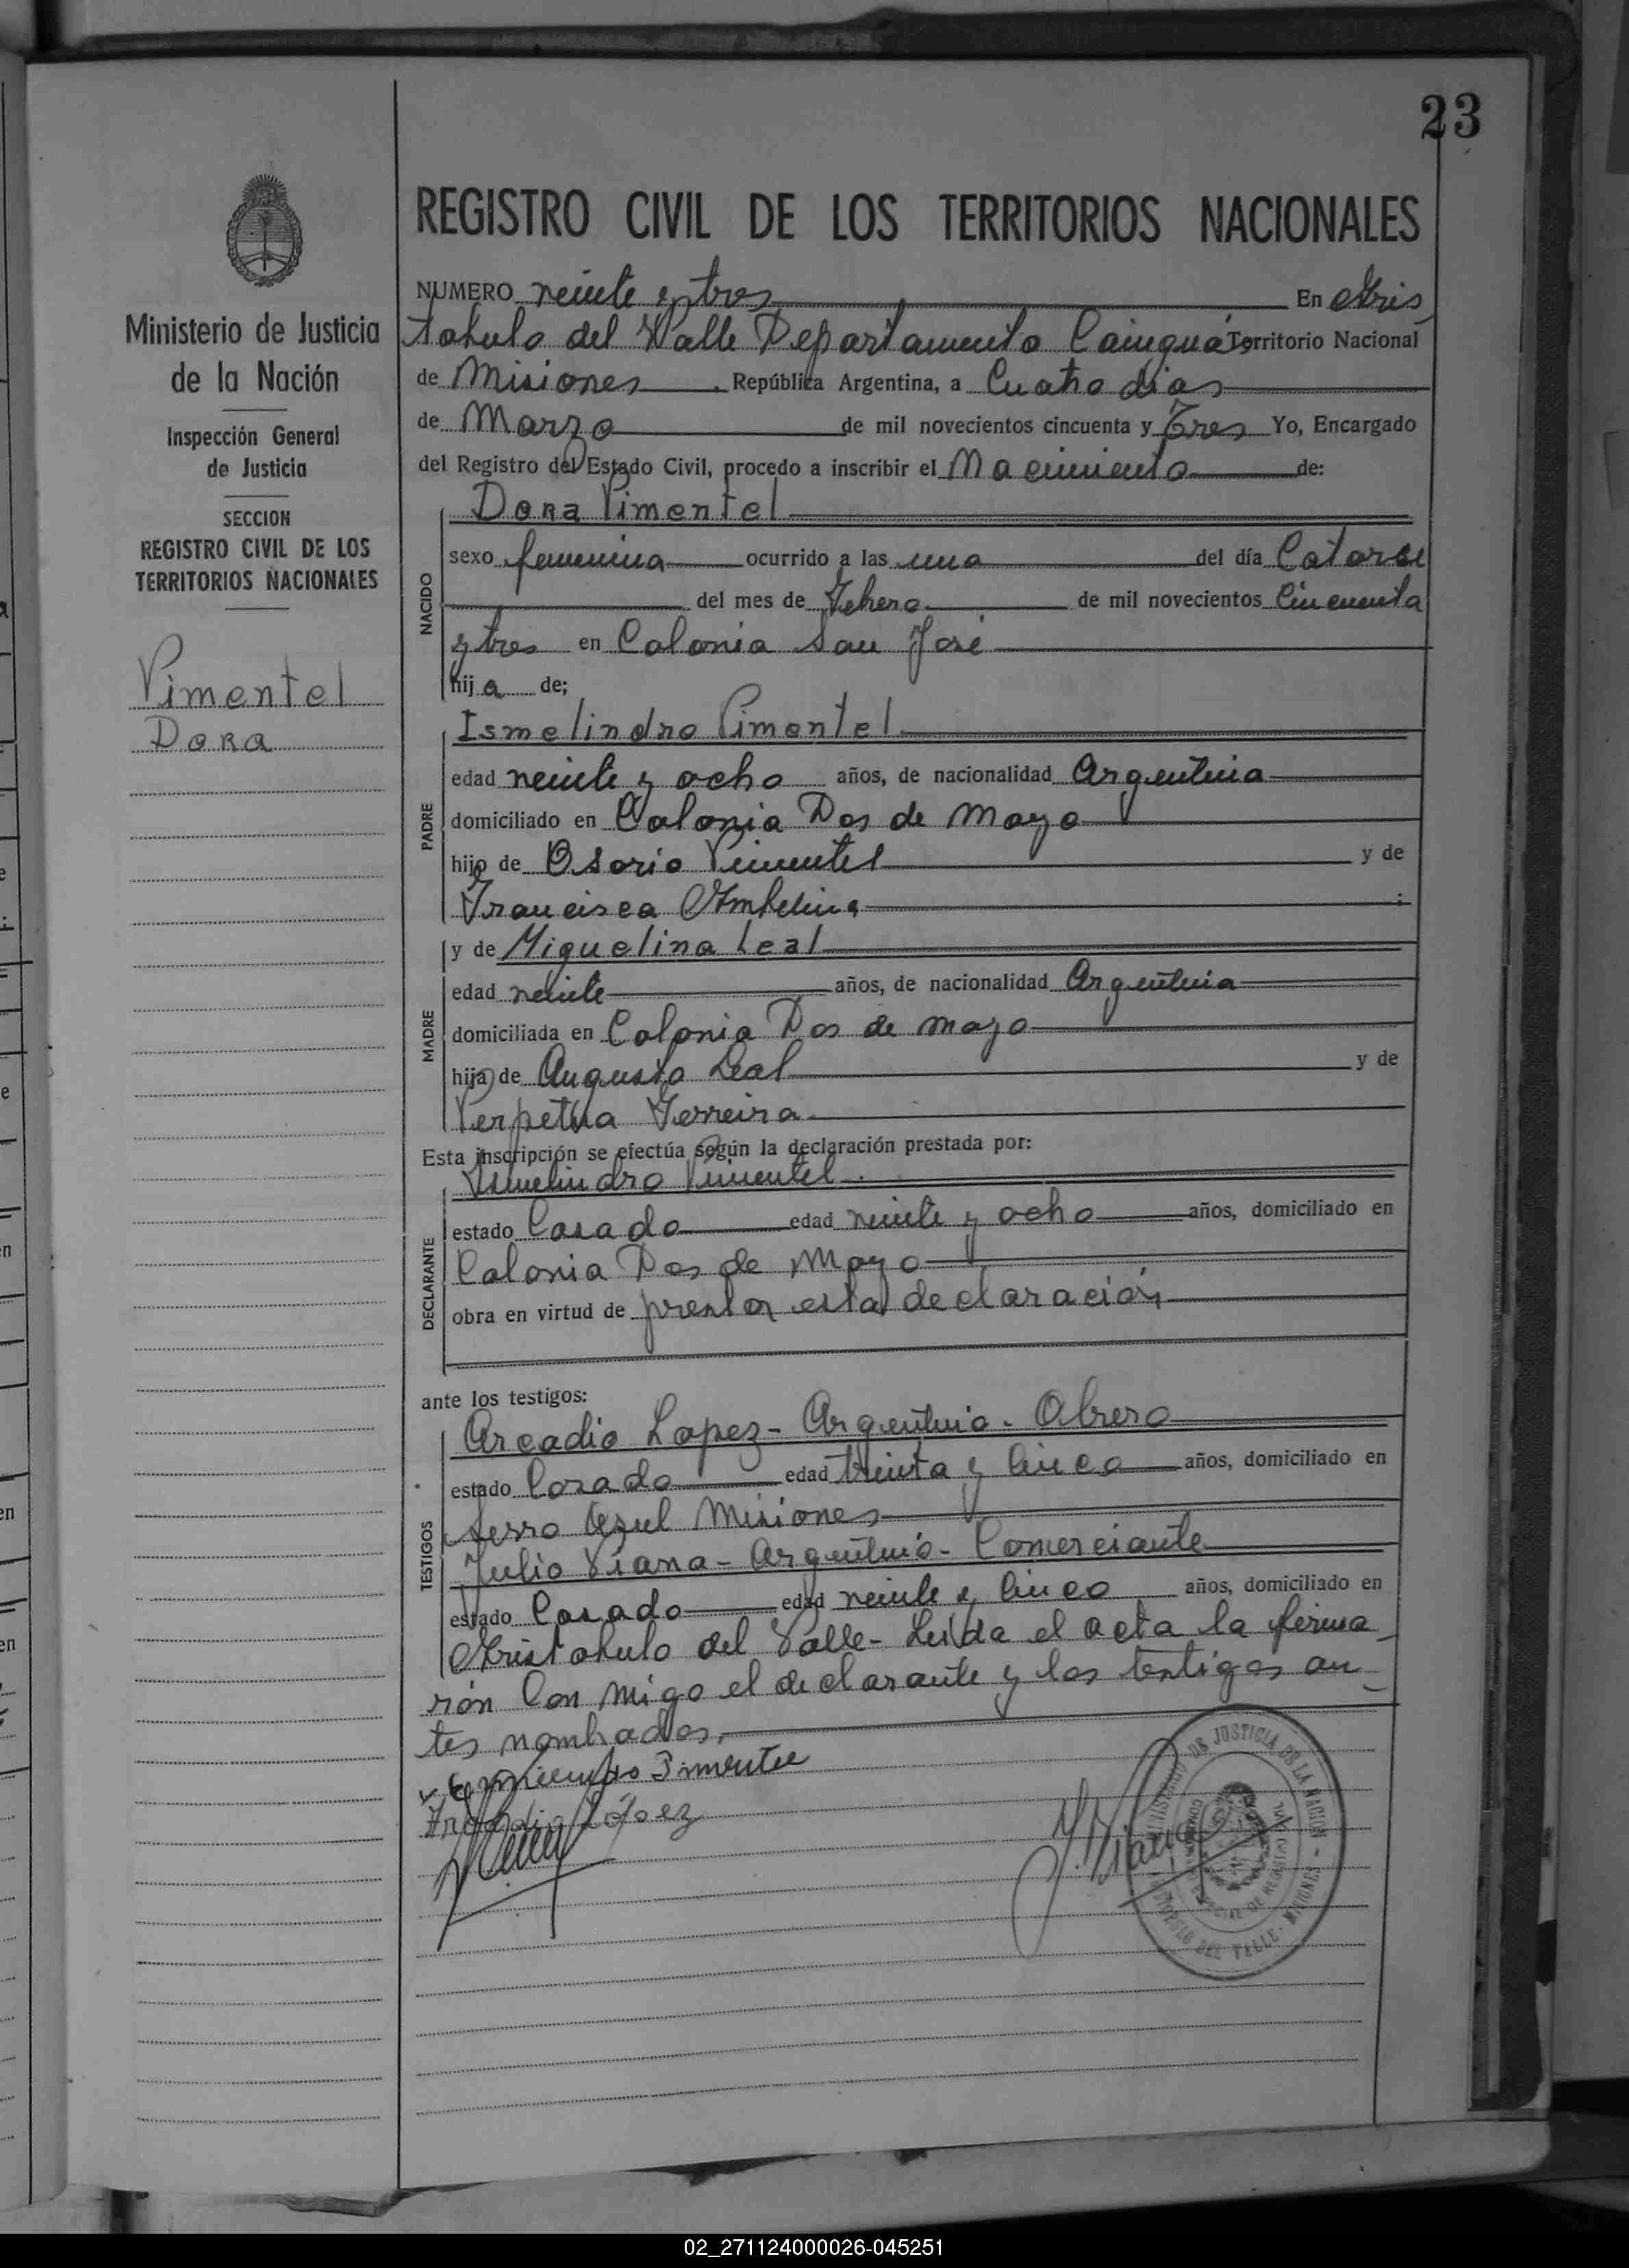 23
REGISTRO CIVIL DE LOS TERRITORIOS NACIONALES
Ministerio de Justicia
de la Nación
Inspección General
de Justicia
SECCION
REGISTRO CIVIL DE LOS
TERRITORIOS NACIONALES
Pimentel
Dora
NUMERO veinte y tres En Aris
tobulo del Valle Departamento Cainguás Territorio Nacional
de Misiones República Argentina, a Cuatro dias
de Marzo de mil novecientos cincuenta y Tres Yo, Encargado
del Registro del Estado Civil, procedo a inscribir el Nacimiento de:
NACIDO
Dora Pimentel
sexo femenina ocurrido a las una del día Catorce
del mes de Febero de mil novecientos Cincuenta
y tres en Colonia San José
hija de;
PADRE
Ismelindro Pimentel
edad veinte y ocho años, de nacionalidad Argentina
domiciliado en Colonia Dos de Mayo
hijo de Osorio Pimentel y de
Francisca Ambelina;
MADRE
y de Miguelina Leal
edad veinte años, de nacionalidad Argentina
domiciliada en Colonia Dos de mayo
hija de Augusto Leal y de
Perpetua Ferreira
Esta inscripción se efectúa según la declaración prestada por:
DECLARANTE
Ismelindro Pimentel
estado Casado edad veinte y ocho años, domiciliado en
Colonia Dos de Mayo
obra en virtud de prestar esta declaración
ante los testigos:
TESTIGOS
Arcadio Lopez - Argentino - Obrero
estado Casado edad treinta y cinco años, domiciliado en
Serro Azul Misiones
Julio Viana - Argentino - Comerciante
estado Casado edad veinte y cinco años, domiciliado en
Aristobulo del Valle - Leida el acta la firma
rón Con migo el declarante y los testigos an
tes nombrados.
Pimentel
Arcadio López
J. Viana
MINISTERIO DE JUSTICIA DE LA NACION
DEL VALLE - MISIONES
02_271124000026-045251